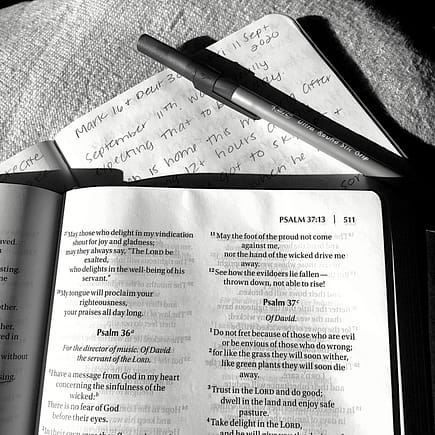 11 Sept
2020
Mark 16 + Deut 30
September 11th, w
expecting that to b
is home this m after
12+ hours a
got to sk
when he
Ultra Round Stic Grip
PSALM 37:13 | 511
27May those who delight in my vindication
shout for joy and gladness;
may they always say, "The LORD be
exalted,
who delights in the well-being of his
servant."
28My tongue will proclaim your
righteousness,
your praises all day long.
Psalm 36a
For the director of music. Of David
the servant of the LORD.
1I have a message from God in my heart
concerning the sinfulness of the
wicked:b
There is no fear of God
before their eyes.
2In their own eyes
11May the foot of the proud not come
against me,
nor the hand of the wicked drive me
away.
12See how the evildoers lie fallen—
thrown down, not able to rise!
Psalm 37c
Of David.
1Do not fret because of those who are evil
or be envious of those who do wrong;
2for like the grass they will soon wither,
like green plants they will soon die
away.
3Trust in the LORD and do good;
dwell in the land and enjoy safe
pasture.
4Take delight in the LORD,
and he will give you